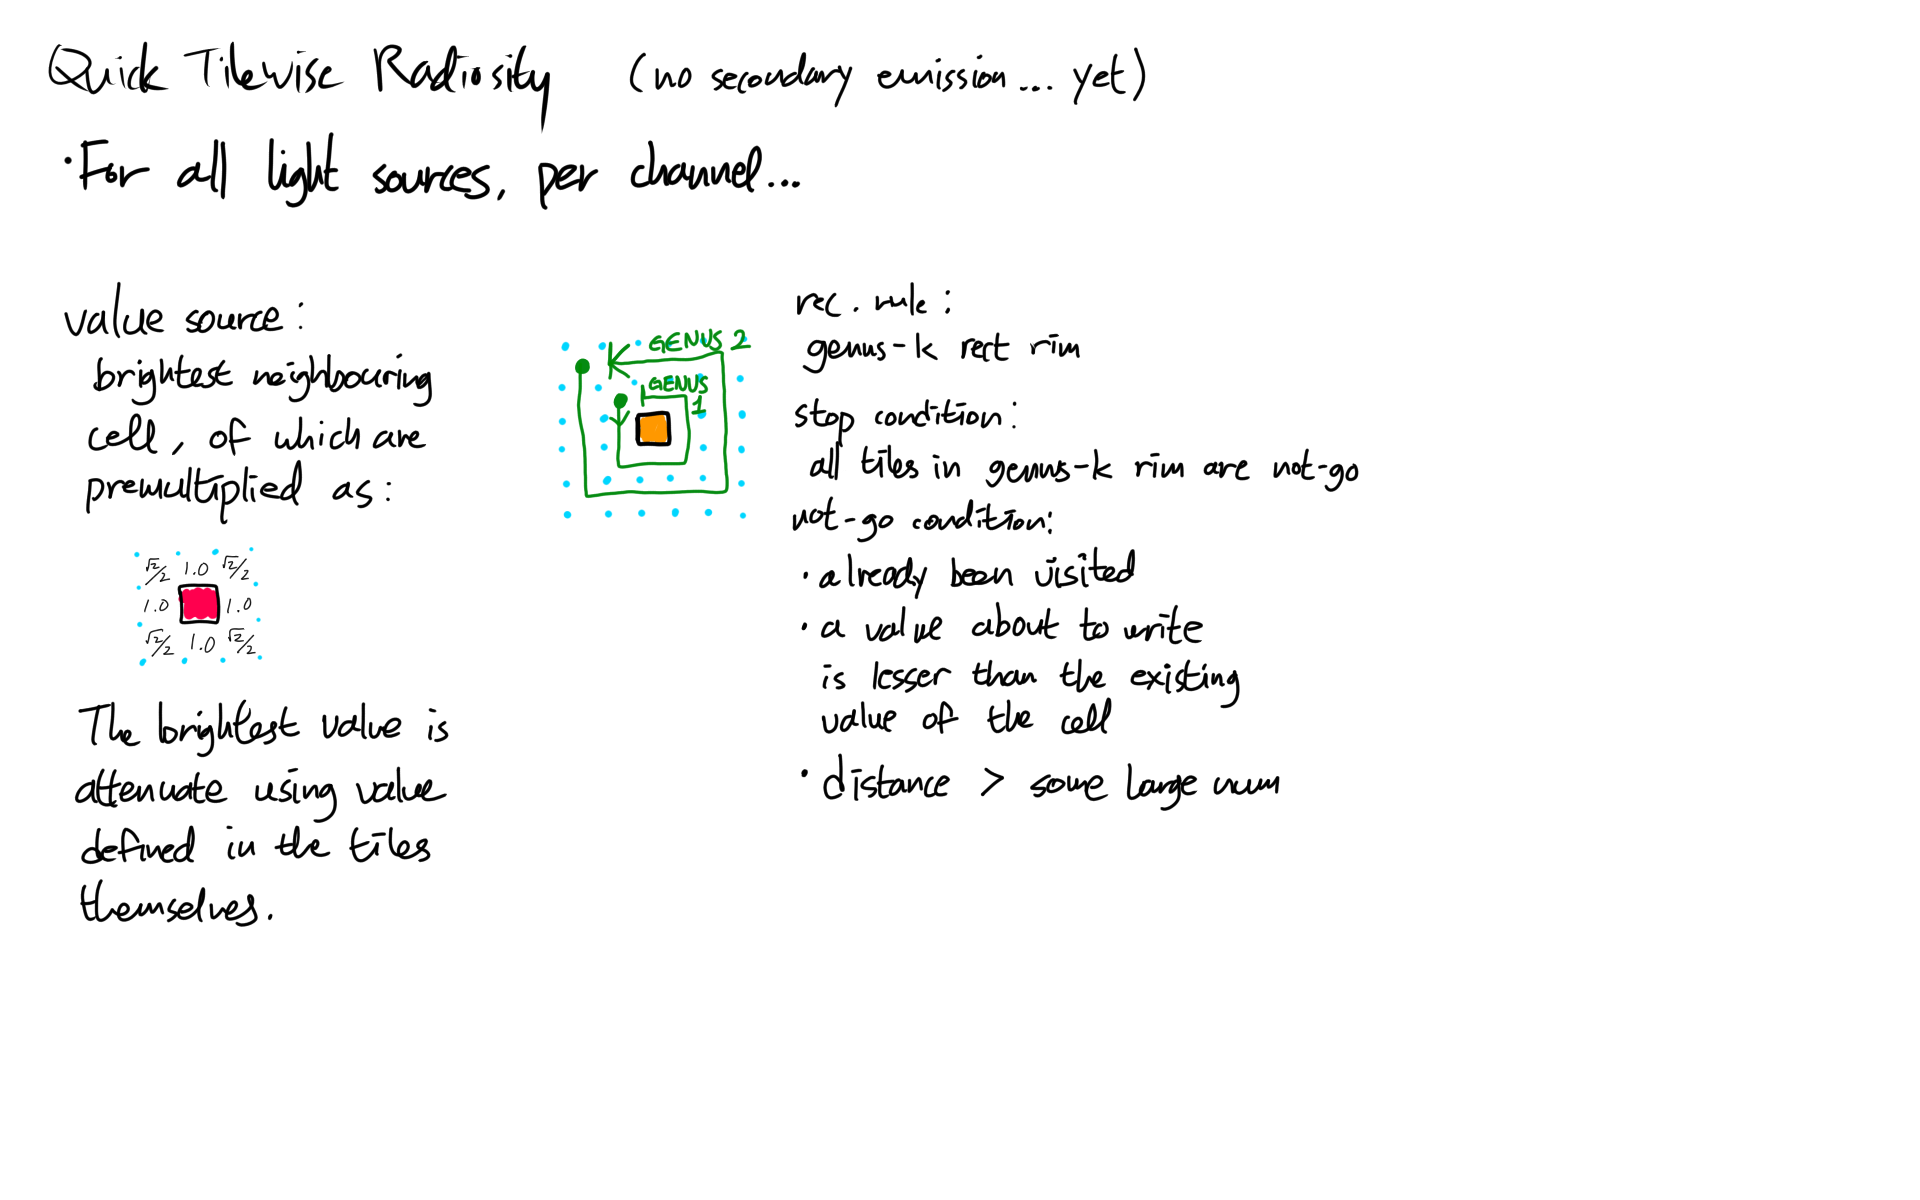 Quick Tilewise Radiosity (no secondary emission... yet)
• For all light sources, per channel...
value source:
brightest neighbouring
cell, of which are
premultiplied as:
√2/2 1.0 √2/2
1.0 1.0
√2/2 1.0 √2/2
The brightest value is
attenuate using value
defined in the tiles
themselves.
GENUS 2
GENUS
1
rec. rule:
genus-k rect rim
stop condition:
all tiles in genus-k rim are not-go
not-go condition:
• already been visited
• a value about to write
is lesser than the existing
value of the cell
• distance > some large num